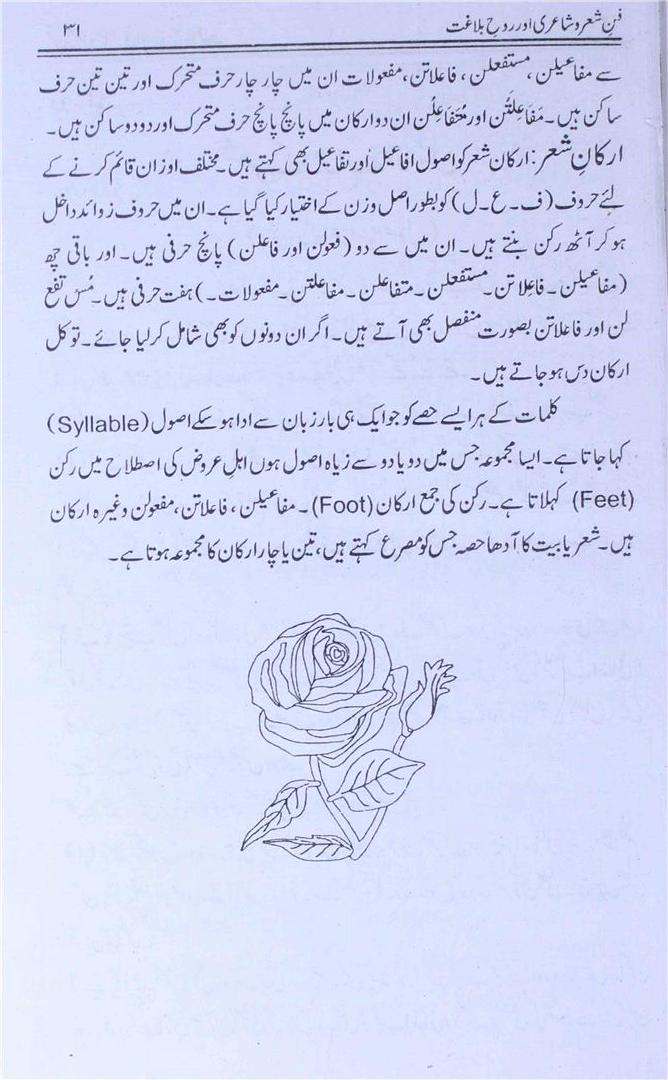 فنِ شعر و شاعری اور روحِ بلاغت ۳۱
سے مفاعیلن، مستفعلن، فاعلاتن، مفعولات ان میں چار چار حرف متحرک اور تین تین حرف
ساکن ہیں۔ مَفَاعِلَتُن اور مُتَفَاعِلُن ان دو ارکان میں پانچ پانچ حرف متحرک اور دو دو ساکن ہیں۔
ارکانِ شعر: ارکان شعر کو اصول افاعیل اور تفاعیل بھی کہتے ہیں۔ مختلف اوزان قائم کرنے کے
لئے حروف (ف۔ع۔ل) کو بطور اصل وزن کے اختیار کیا گیا ہے۔ ان میں حروف زوائد داخل
ہو کر آٹھ رکن بنتے ہیں۔ ان میں سے دو (فعولن اور فاعلن) پانچ حرفی ہیں۔ اور باقی چھ
(مفاعیلن۔ فاعِلاتن۔ مستفعلن۔ متفاعلن۔ مفاعلتن۔ مفعولات۔) ہفت حرفی ہیں۔ مُس تفع
لن اور فاعلاتن بصورت منفصل بھی آتے ہیں۔ اگر ان دونوں کو بھی شامل کر لیا جائے۔ تو کل
ارکان دس ہو جاتے ہیں۔
کلمات کے ہر ایسے حصے کو جو ایک ہی بار زبان سے ادا ہو سکے اصول (Syllable)
کہا جاتا ہے۔ ایسا مجموعہ جس میں دو یا دو سے زیاہ اصول ہوں اہلِ عروض کی اصطلاح میں رکن
(Feet) کہلاتا ہے۔ رکن کی جمع ارکان (Foot)۔ مفاعیلن، فاعلاتن، مفعولن وغیرہ ارکان
ہیں۔ شعر یا بیت کا آدھا حصہ جس کو مصرع کہتے ہیں، تین یا چار ارکان کا مجموعہ ہوتا ہے۔